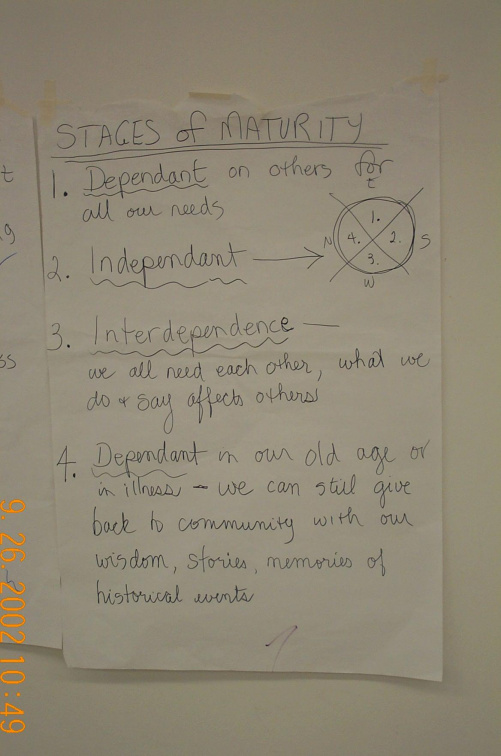 STAGES of MATURITY
1. Dependant on others for
all our needs
2. Independant
E
1.
N 4. 2. S
3.
W
3. Interdependence —
we all need each other, what we
do + say affects others
4. Dependant in our old age or
in illness - we can still give
back to community with our
wisdom, stories, memories of
historical events
t
g
ss
9. 26. 2002 10:49